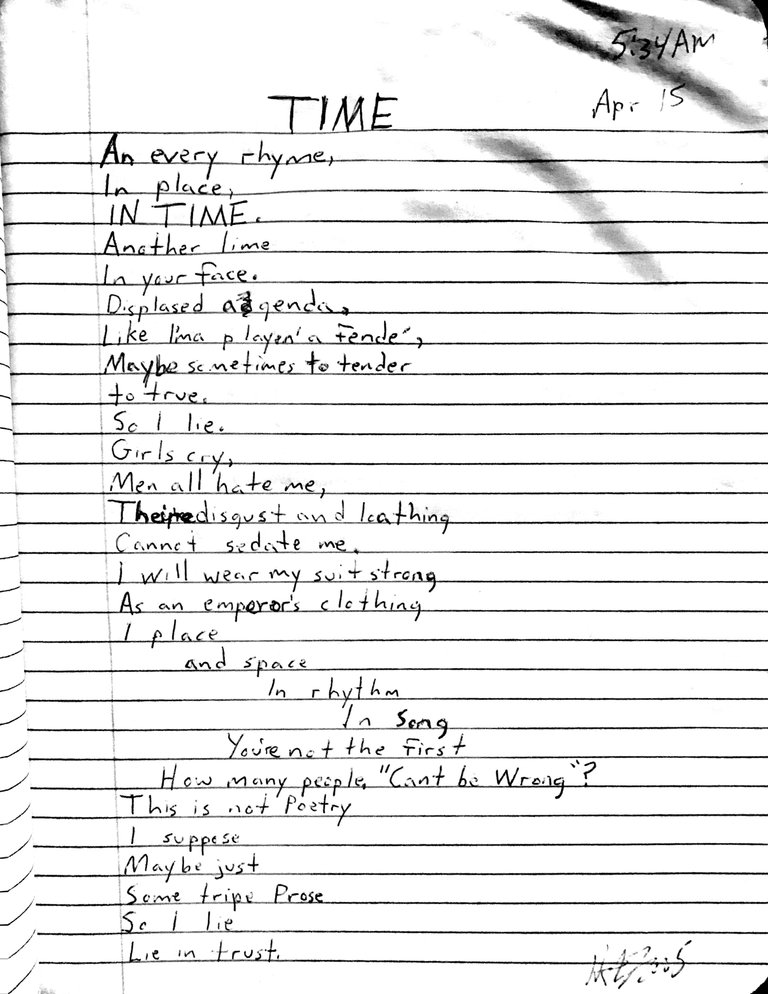 5:34 AM
Apr 15
TIME
An every rhyme,
In place,
IN TIME.
Another lime
In your face.
Displased agenda,
Like I'ma playen' a Fende',
Maybe sometimes to tender
to true.
So I lie.
Girls cry,
Men all hate me,
Their disgust and loathing
Cannot sedate me.
I will wear my suit strong
As an emperor's clothing
I place
and space
In rhythm
In Song
You're not the First
How many people, "Cant be Wrong"?
This is not Poetry
I suppose
Maybe just
Some tripe Prose
So I lie
Lie in trust.